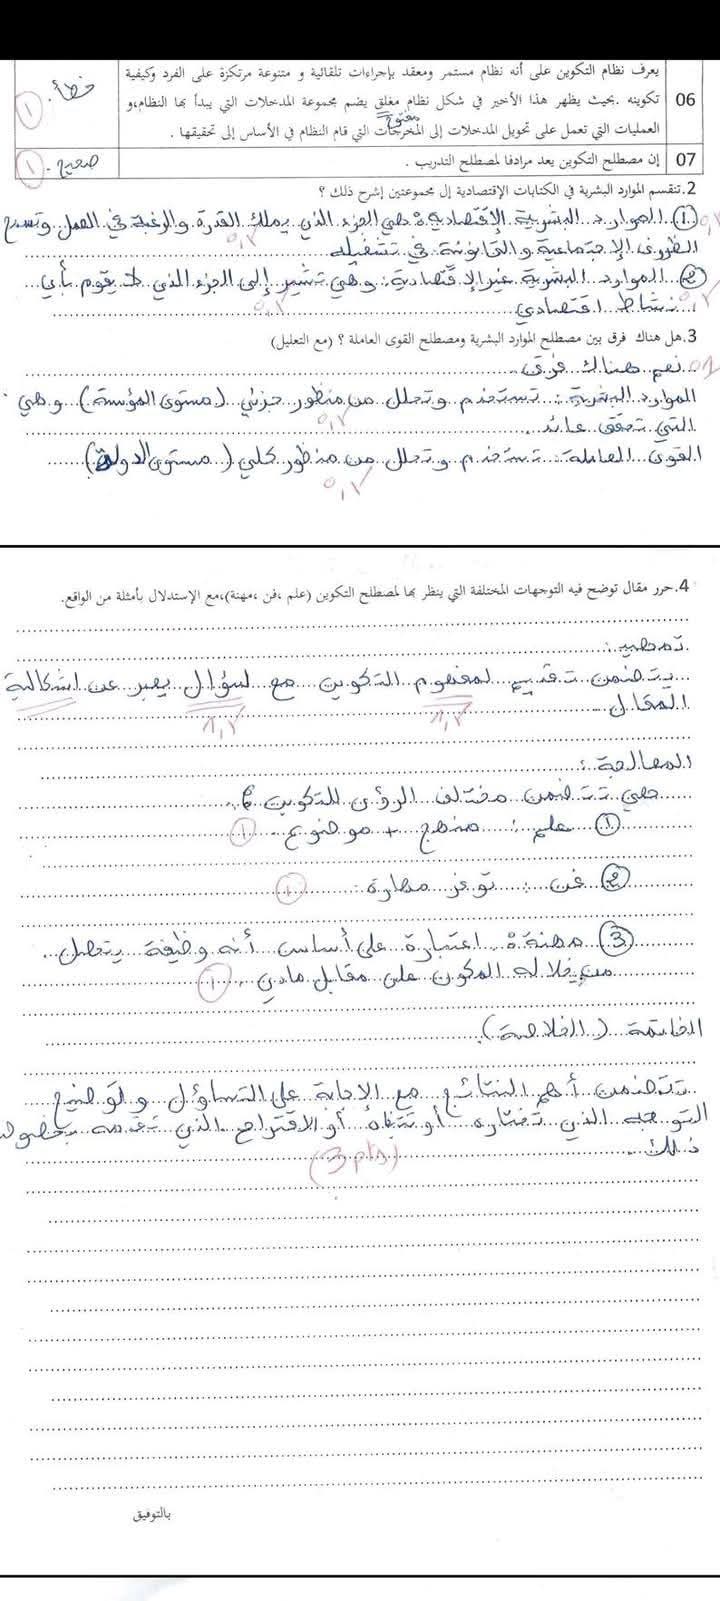 يعرف نظام التكوين على أنه نظام مستمر ومعقد بإجراءات تلقائية و متنوعة مرتكزة على الفرد وكيفية
06 تكوينه .بحيث يظهر هذا الأخير في شكل نظام مغلق يضم مجموعة المدخلات التي يبدأ بها النظام،و خطأ. 1
مفتوح
العمليات التي تعمل على تحويل المدخلات إلى المخرجات التي قام النظام في الأساس إلى تحقيقها .
07 إن مصطلح التكوين يعد مرادفا لمصطلح التدريب . صحيح. 1
2.تنقسم الموارد البشرية في الكتابات الإقتصادية إل مجموعتين إشرح ذلك ؟
① الموارد البشرية الإقتصادية: هي الجزء الذي يملك القدرة والرغبة في العمل وتسمح
الظروف الإجتماعية والقانونية في تشغيله
② الموارد البشرية غير الإقتصادية: وهي تشير إلى الجزء الذي لا يقوم بأي
نشاط اقتصادي
3.هل هناك فرق بين مصطلح الموارد البشرية ومصطلح القوى العاملة ؟ (مع التعليل)
نعم هناك فرق.
الموارد البشرية: تستخدم وتحلل من منظور جزئي (مستوى المؤسسة) وهي
التي تحقق عائد.
القوى العاملة: تستخدم وتحلل من منظور كلي (مستوى الدولة)
4.حرر مقال توضح فيه التوجهات المختلفة التي ينظر بها لمصطلح التكوين (علم ،فن ،مهنة)،مع الإستدلال بأمثلة من الواقع.
تمهيد:
يتضمن تقديم لمفهوم التكوين مع لسؤال يعبر عن إشكالية
المقال.
المعالجة:
هي تتضمن مختلف الرؤى للتكوين
① علم: منهج + موضوع. 1
② فن: توفر مهارة. 1
③ مهنة: اعتباره على أساس أنه وظيفة يتحصل
من خلاله المكون على مقابل مادي. 1
الخاتمة (الخلاصة).
تتضمن أهم النتائج مع الإجابة على التساؤل وتوضيح
التوجه الذي تختاره أو تتبناه أو الاقتراح الذي تقدمه بخصوص
ذلك.
(3 pts)
بالتوفيق